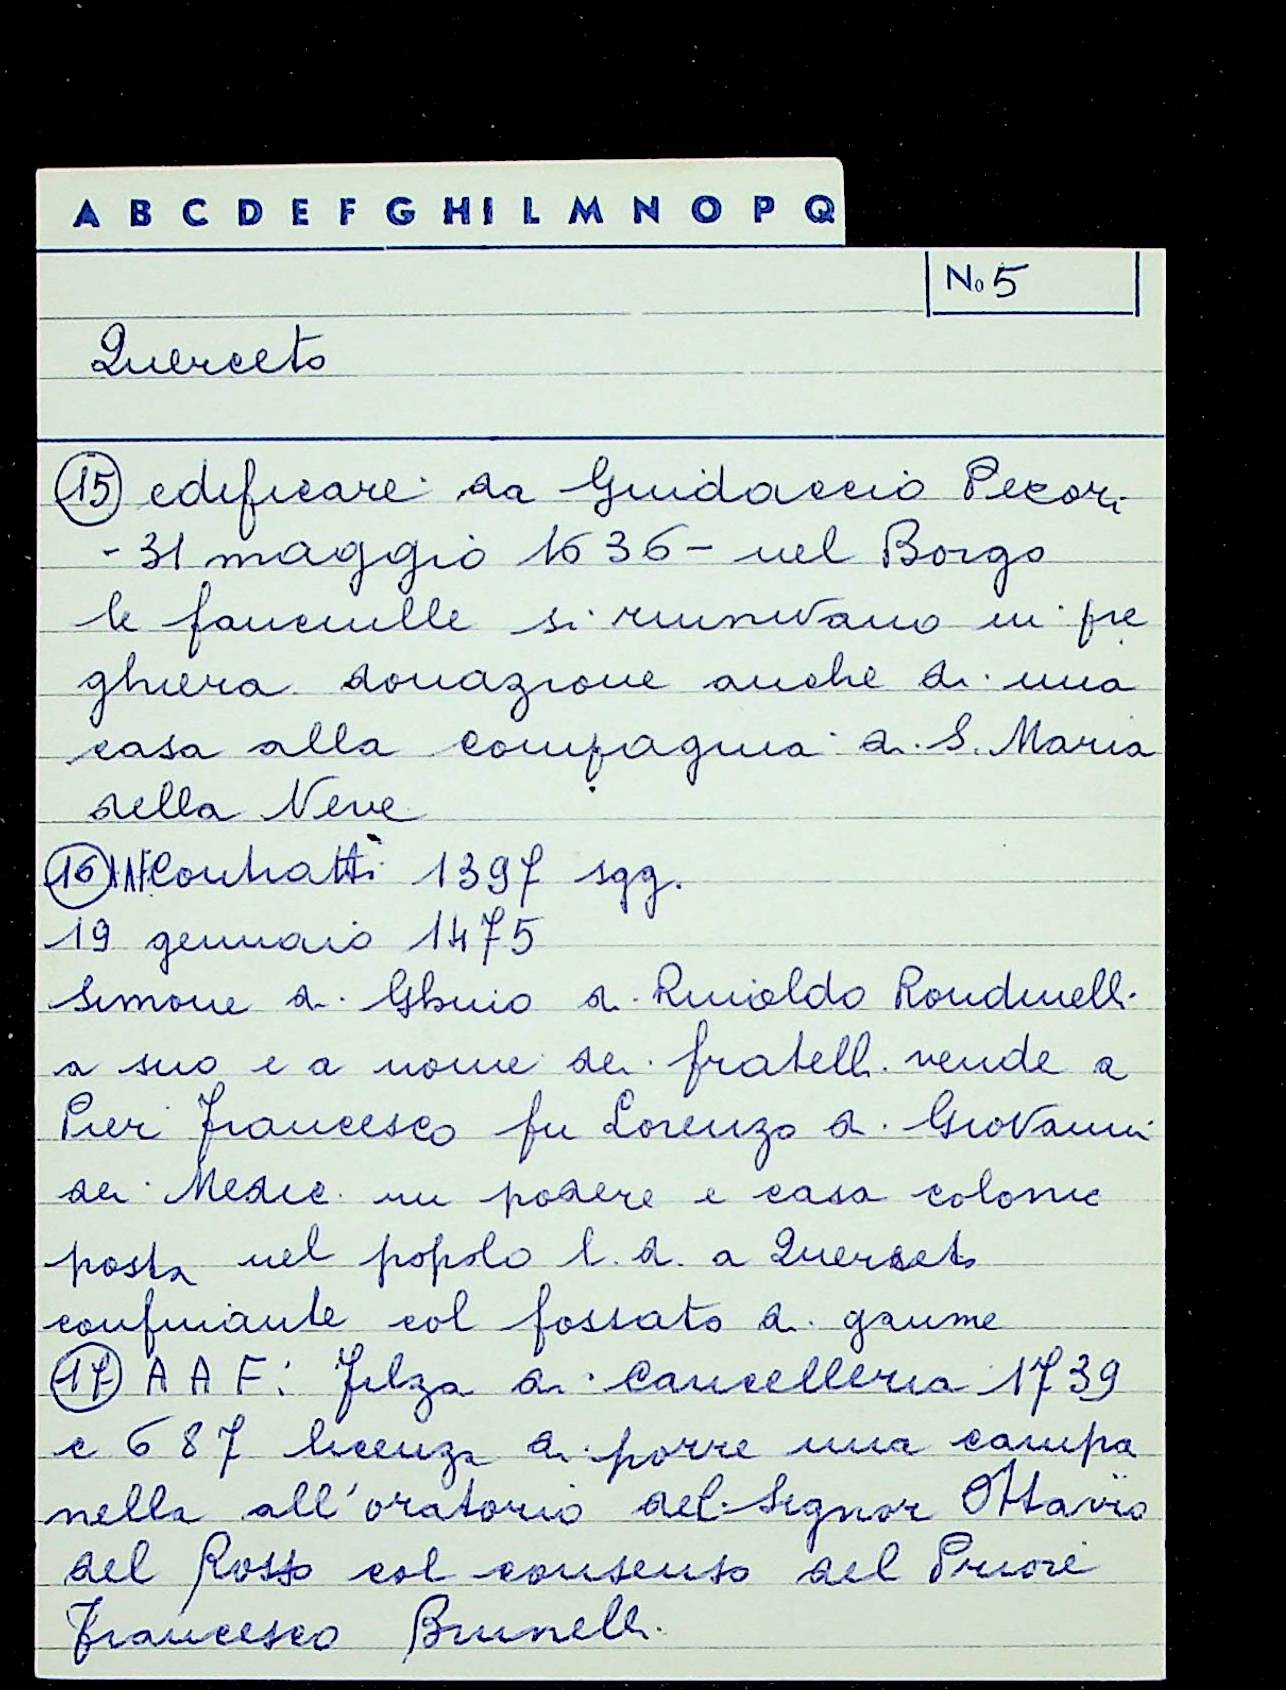 A B C D E F G H I L M N O P Q
No 5
Querceto
15 edificare da Guidaccio Pecori
- 31 maggio 1636 - nel Borgo
le fanciulle si riunivano in pre
ghiera donazione anche di una
casa alla compagnia di S. Maria
della Neve
16 Contratti 1397 sgg.
19 gennaio 1475
Simone di Ghino di Rinieldo Rondinelli
a suo e a nome dei fratelli vende a
Pier Francesco fu Lorenzo di Giovanni
dei Medici un podere e casa colonic
posta nel popolo l. d. a Querceto
confinante col fossato di gaume
17 A A F: Filza di Cancelleria 1739
c 687 licenza di porre una campa
nella all'oratorio del Signor Ottavio
del Rosso col consenso del Priore
Francesco Brunelli.